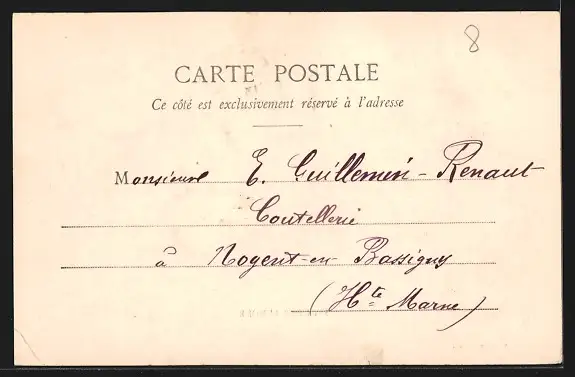 8
CARTE POSTALE
Ce côté est exclusivement réservé à l'adresse
Monsieur E. Guillemin - Renaut
Coutellerie
à Nogent-en-Bassigny
(Hte Marne)